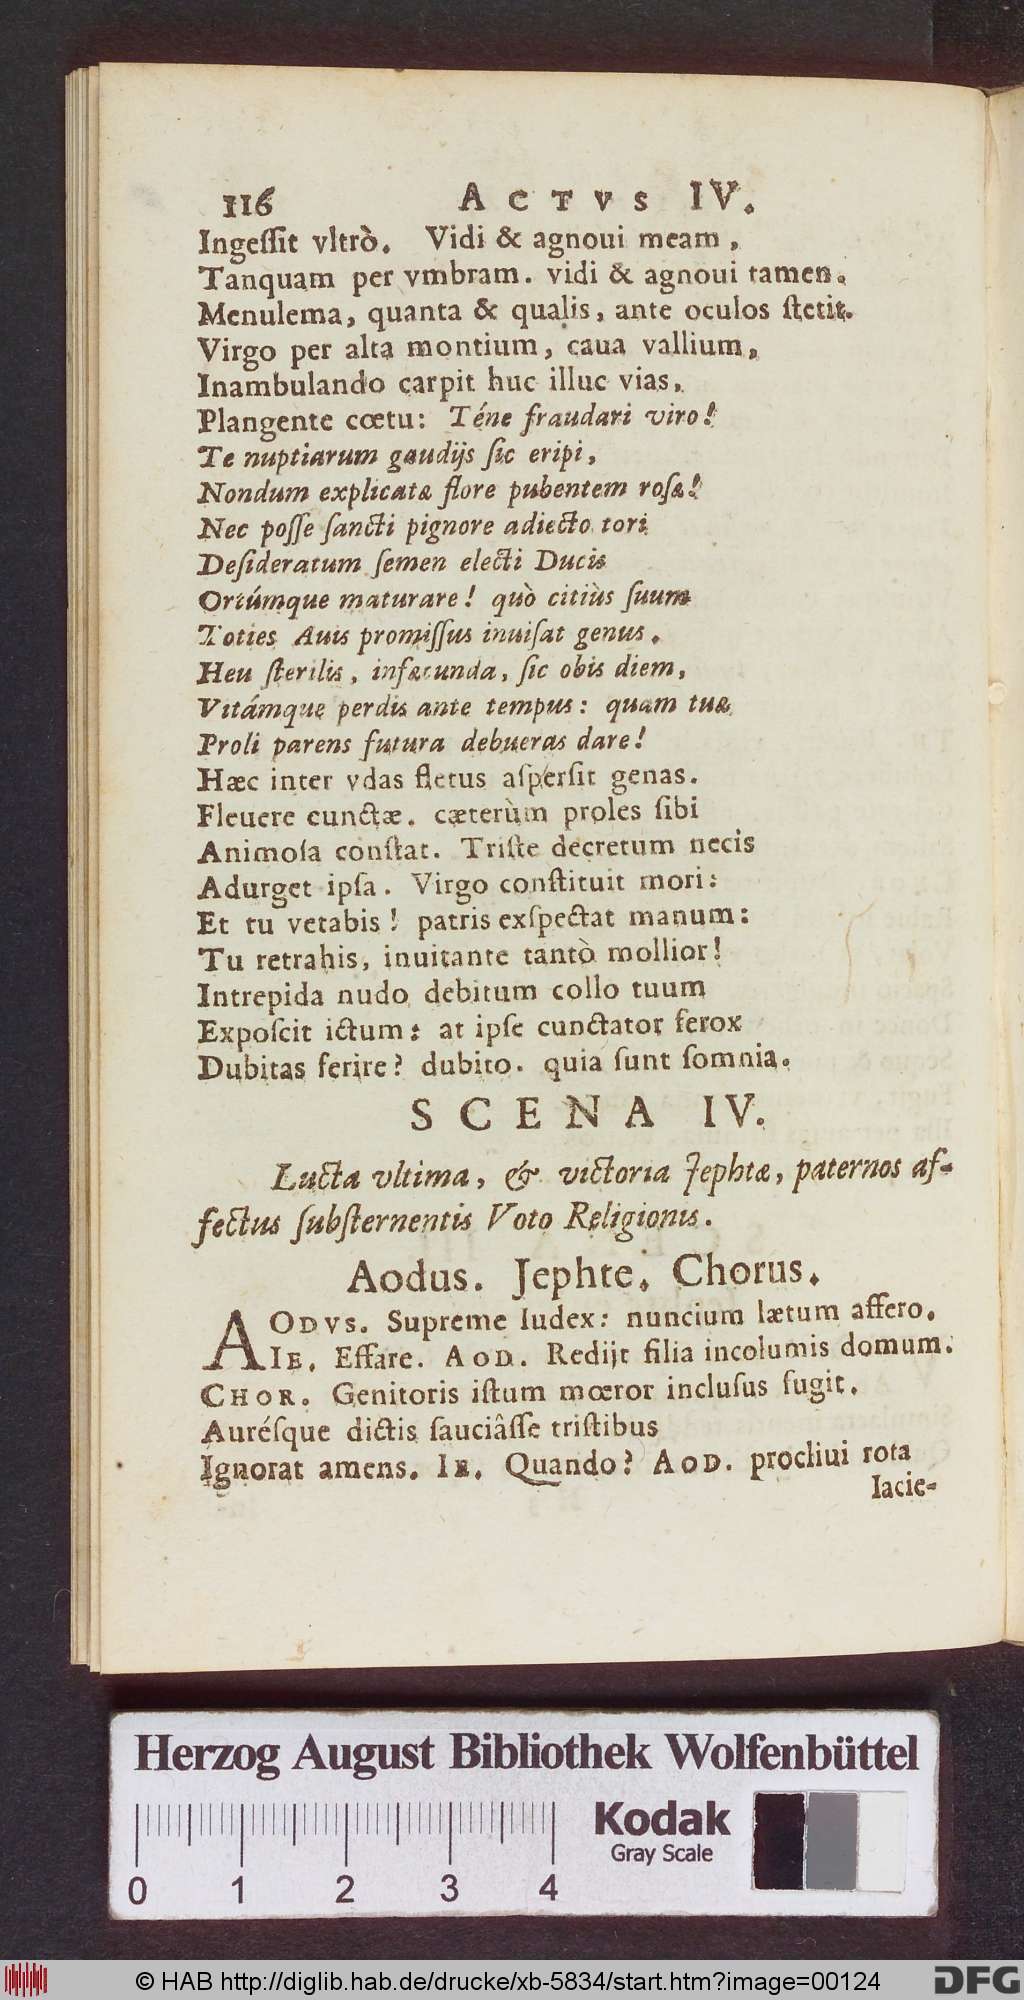 116 ACTVS IV.
Ingeſſit vltrò. Vidi & agnoui meam,
Tanquam per vmbram. vidi & agnoui tamen.
Menulema, quanta & qualis, ante oculos ſtetit.
Virgo per alta montium, caua vallium,
Inambulando carpit huc illuc vias,
Plangente cœtu: Téne fraudari viro!
Te nuptiarum gaudijs ſic eripi,
Nondum explicatæ flore pubentem roſæ!
Nec poſſe ſancti pignore adiecto tori
Deſideratum ſemen electi Ducis
Ortúmque maturare! quò citiùs ſuum
Toties Auis promiſſus inuiſat genus.
Heu ſterilis, infæcunda, ſic obis diem,
Vitámque perdis ante tempus: quam tuæ
Proli parens futura debueras dare!
Hæc inter vdas fletus aſperſit genas.
Fleuere cunctæ. cæterùm proles ſibi
Animoſa conſtat. Triſte decretum necis
Adurget ipſa. Virgo conſtituit mori:
Et tu vetabis! patris exſpectat manum:
Tu retrahis, inuitante tantò mollior!
Intrepida nudo debitum collo tuum
Expoſcit ictum: at ipſe cunctator ferox
Dubitas ferire? dubito. quia ſunt ſomnia.
SCENA IV.
Lucta vltima, & victoria Jephtæ, paternos af-
fectus ſubſternentis Voto Religionis.
Aodus. Jephte. Chorus.
AODVS. Supreme Iudex: nuncium lætum affero.
IE. Effare. AOD. Redijt filia incolumis domum.
CHOR. Genitoris iſtum mœror incluſus fugit.
Auréſque dictis ſauciâſſe triſtibus
Ignorat amens. IE. Quando? AOD. procliui rota
Iacie-
Herzog August Bibliothek Wolfenbüttel
Kodak
Gray Scale
0 1 2 3 4
© HAB http://diglib.hab.de/drucke/xb-5834/start.htm?image=00124
DFG